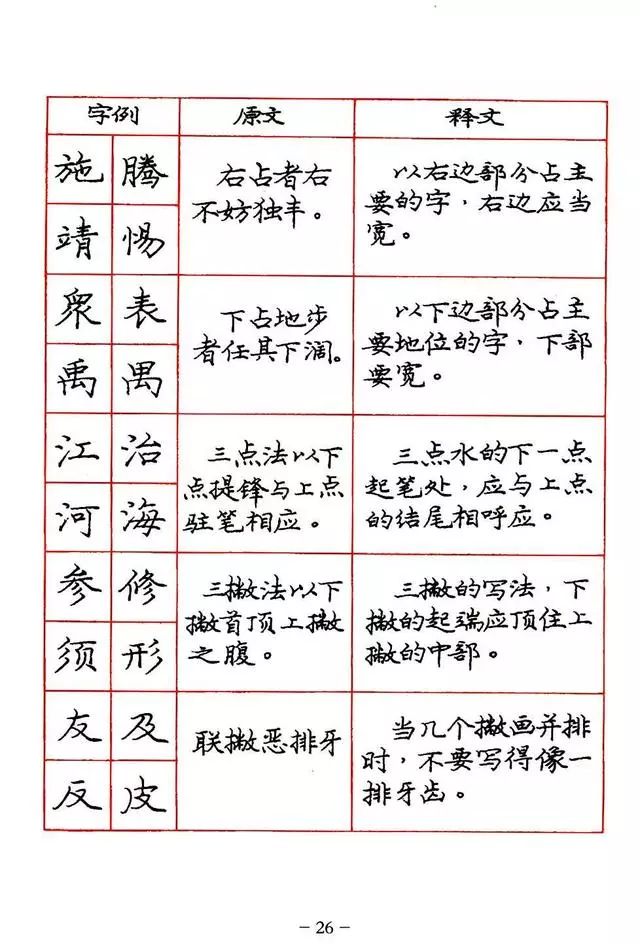 字例 原文 释文
施 腾
靖 惕
右占者右
不妨独丰。
以右边部分占主
要的字，右边应当
宽。
衆 表
禹 禺
下占地步
者任其下阔。
以下边部分占主
要地位的字，下部
要宽。
江 治
河 海
三点法以下
点提锋与上点
驻笔相应。
三点水的下一点
起笔处，应与上点
的结尾相呼应。
参 修
须 形
三撇法以下
撇首顶上撇
之腹。
三撇的写法，下
撇的起端应顶住上
撇的中部。
友 及
反 皮
联撇恶排牙
当几个撇画并排
时，不要写得像一
排牙齿。
- 26 -